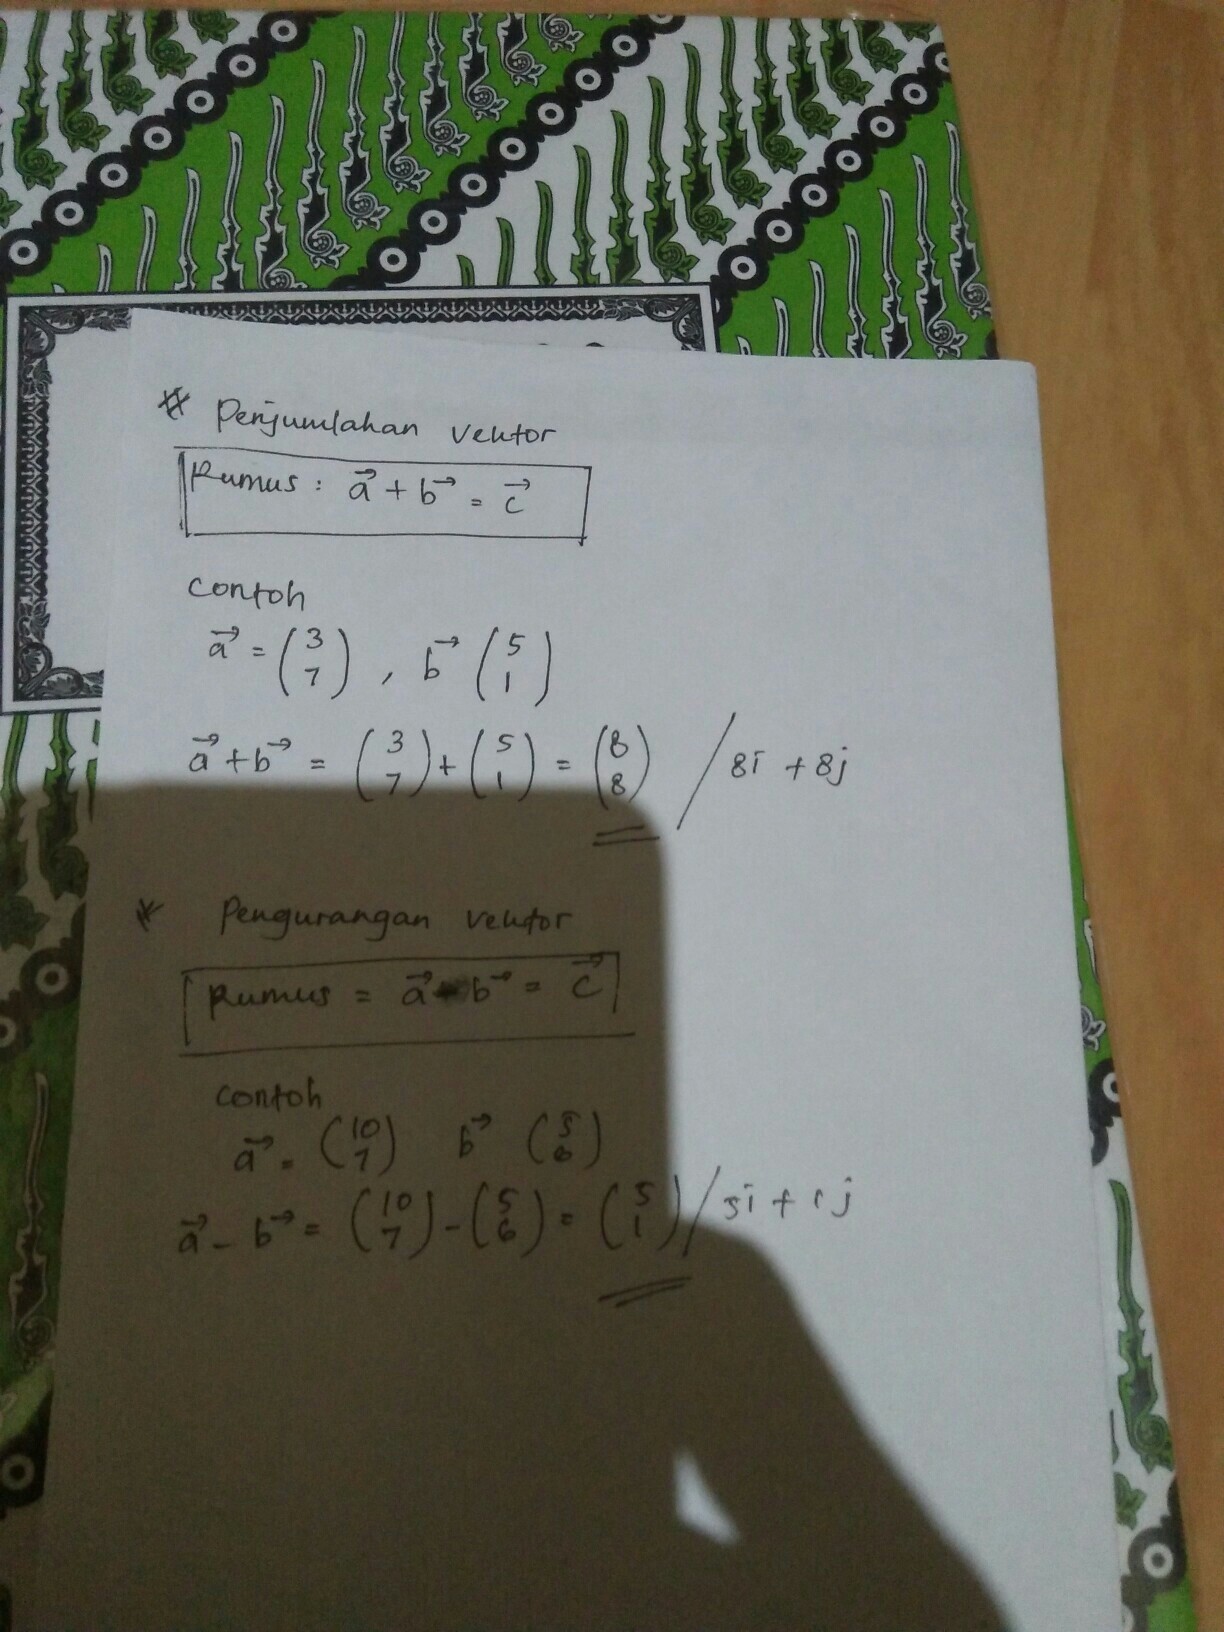 * Penjumlahan vektor
Rumus : a⃗ + b⃗ = c⃗
Contoh
a⃗ = (3 7) , b⃗ (5 1)
a⃗ + b⃗ = (3 7) + (5 1) = (8 8) / 8i + 8j
* Pengurangan vektor
Rumus = a⃗ - b⃗ = c⃗
Contoh
a⃗ = (10 7) b⃗ (5 6)
a⃗ - b⃗ = (10 7) - (5 6) = (5 1) / 5i + 1j